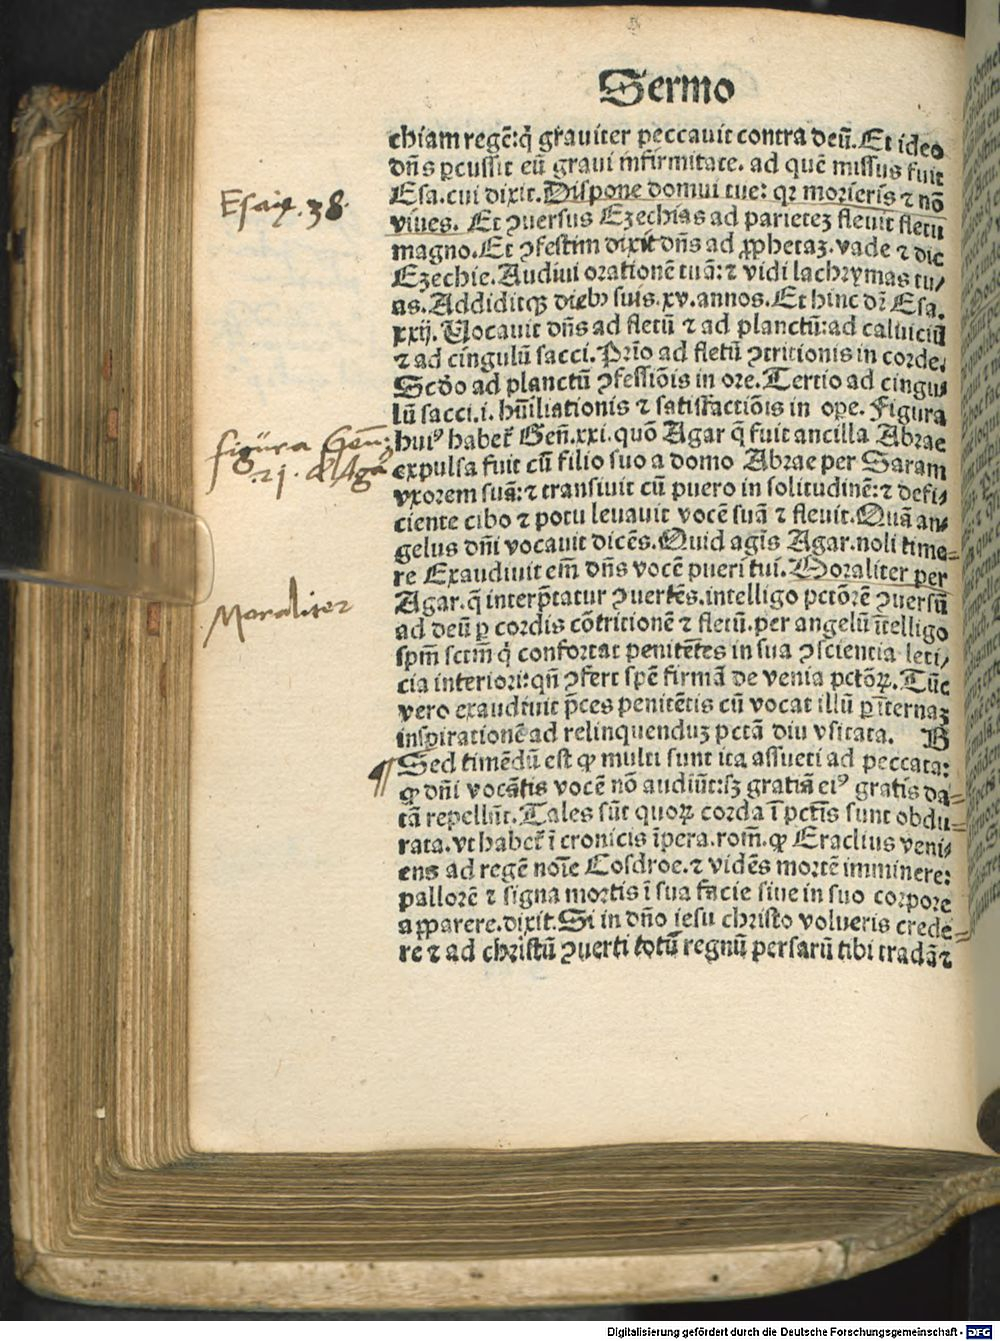 Sermo
chiam regē: q̇ grauiter peccauit contra deū. Et ideo
dn̄s ꝑcussit eū graui infirmitate. ad quē missus fuit
Esa. cui dixit. Dispone domui tue: qꝛ morieris ⁊ nō
viues. Et ꝯuersus Ezechias ad parietez fleuit fletu
magno. Et ꝯfestim dixit dn̄s ad ꝓphetaz. vade ⁊ dic
Ezechie. Audiui orationē tuā: ⁊ vidi lachrymas tu/
as. Addiditqꝫ diebꝰ suis. xv. annos. Et hinc dr̄ Esa.
xxij. Uocauit dn̄s ad fletū ⁊ ad planctū: ad caluiciū
⁊ ad cingulū sacci. Prīo ad fletū ꝯtritionis in corde.
Scd̄o ad planctū ꝯfessiōis in ore. Tertio ad cingu/
lū sacci. i. hūiliationis ⁊ satisfactiōis in oꝑe. Figura
huiꝰ habet̄ Geñ. xxi. quō Agar q̄ fuit ancilla Abrae
expulsa fuit cū filio suo a domo Abrae per Saram
vxorem suā: ⁊ transiuit cū puero in solitudinē: ⁊ defi/
ciente cibo ⁊ potu leuauit vocē suā ⁊ fleuit. Quā an/
gelus dn̄i vocauit dicēs. Quid agis Agar. noli time=
re Exaudiuit em̄ dn̄s vocē pueri tui. Moraliter per
Agar. q̄ interp̄tatur ꝯuertēs. intelligo pctōrē ꝯuersū
ad deū ꝑ cordis cōtritionē ⁊ fletū. per angelū ītelligo
spm̄ sctm̄ q̇ confortat penitētes in sua ꝯscientia leti/
cia interiori: qn̄ ꝯfert spē firmā de venia pctōꝝ. Tūc
vero exaudiuit p̄ces penitētis cū vocat illū ꝑ īternaz
inspirationē ad relinquenduz pctā diu vsitata. B
¶ Sed timēdū est ꝙ multi sunt ita assueti ad peccata:
ꝙ dn̄i vocātis vocē nō audiūt: sꝫ gratiā eiꝰ gratis da=
tā repellūt. Tales sūt quoꝝ corda ī pctīs sunt obdu=
rata. vt habet̄ ī cronicis īpera. rom̄. ꝙ Eraclius veni/
ens ad regē noīe Cosdroe. ⁊ vidēs mortē imminere:
pallorē ⁊ signa mortis ī sua facie siue in suo corpore
apparere. dixit. Si in dn̄o iesu christo volueris crede=
re ⁊ ad christū ꝯuerti totū regnū persarū tibi tradā ⁊
Esaię. 38.
figura Gen:
.21. de Aga
Moraliter
Digitalisierung gefördert durch die Deutsche Forschungsgemeinschaft - DFG